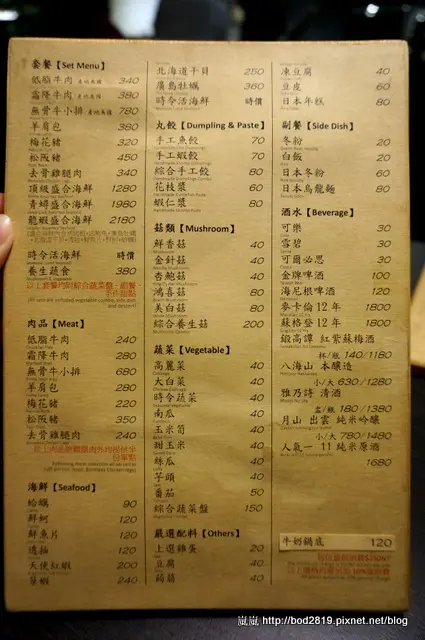 套餐【Set Menu】
低脂牛肉 產地美國 340
霜降牛肉 產地美國 380
無骨牛小排 產地美國 780
羊肩包 380
梅花豬 320
松阪豬 450
去骨雞腿肉 340
頂級盛合海鮮 1280
青蟳盛合海鮮 1980
龍蝦盛合海鮮 2180
時令活海鮮 時價
養生蔬食 380
肉品【Meat】
低脂牛肉 240
霜降牛肉 280
無骨牛小排 680
羊肩包 280
梅花豬 220
松阪豬 350
去骨雞腿肉 240
海鮮【Seafood】
蛤蠣 90
鮮蚵 120
鮮魚片 120
透抽 120
天使紅蝦 200
草蝦 240
北海道干貝 250
廣島牡蠣 360
時令活海鮮 時價
丸餃【Dumpling & Paste】
手工魚餃 70
手工蝦餃 70
綜合手工餃 80
花枝漿 60
蝦仁漿 80
菇類【Mushroom】
鮮香菇 40
金針菇 40
杏鮑菇 40
鴻喜菇 80
美白菇 80
綜合養生菇 200
蔬菜【Vegetable】
高麗菜 40
大白菜 40
時令蔬菜 40
南瓜 40
玉米筍 40
甜玉米 40
絲瓜 40
芋頭 40
番茄 50
綜合蔬菜盤 150
嚴選配料【Others】
上選雞蛋 20
豆腐 40
蒟蒻 40
凍豆腐 40
豆皮 60
日本年糕 80
副餐【Side Dish】
冬粉 20
白飯 20
日本冬粉 60
日本烏龍麵 80
酒水【Beverage】
可樂 30
雪碧 30
可爾必思 30
金牌啤酒 100
海尼根啤酒 120
麥卡倫12年 1800
蘇格登12年 1800
緞高譚 紅紫蘇梅酒
杯/瓶 140/1180
八海山 本釀造
小/大 630/1280
雅乃詩 清酒
180/1380
月山 出雲 純米吟釀
小/大 780/1480
人氣一 11 純米原酒
1680
牛奶鍋底 120
嵐嵐 http://bod2819.pixnet.net/blog